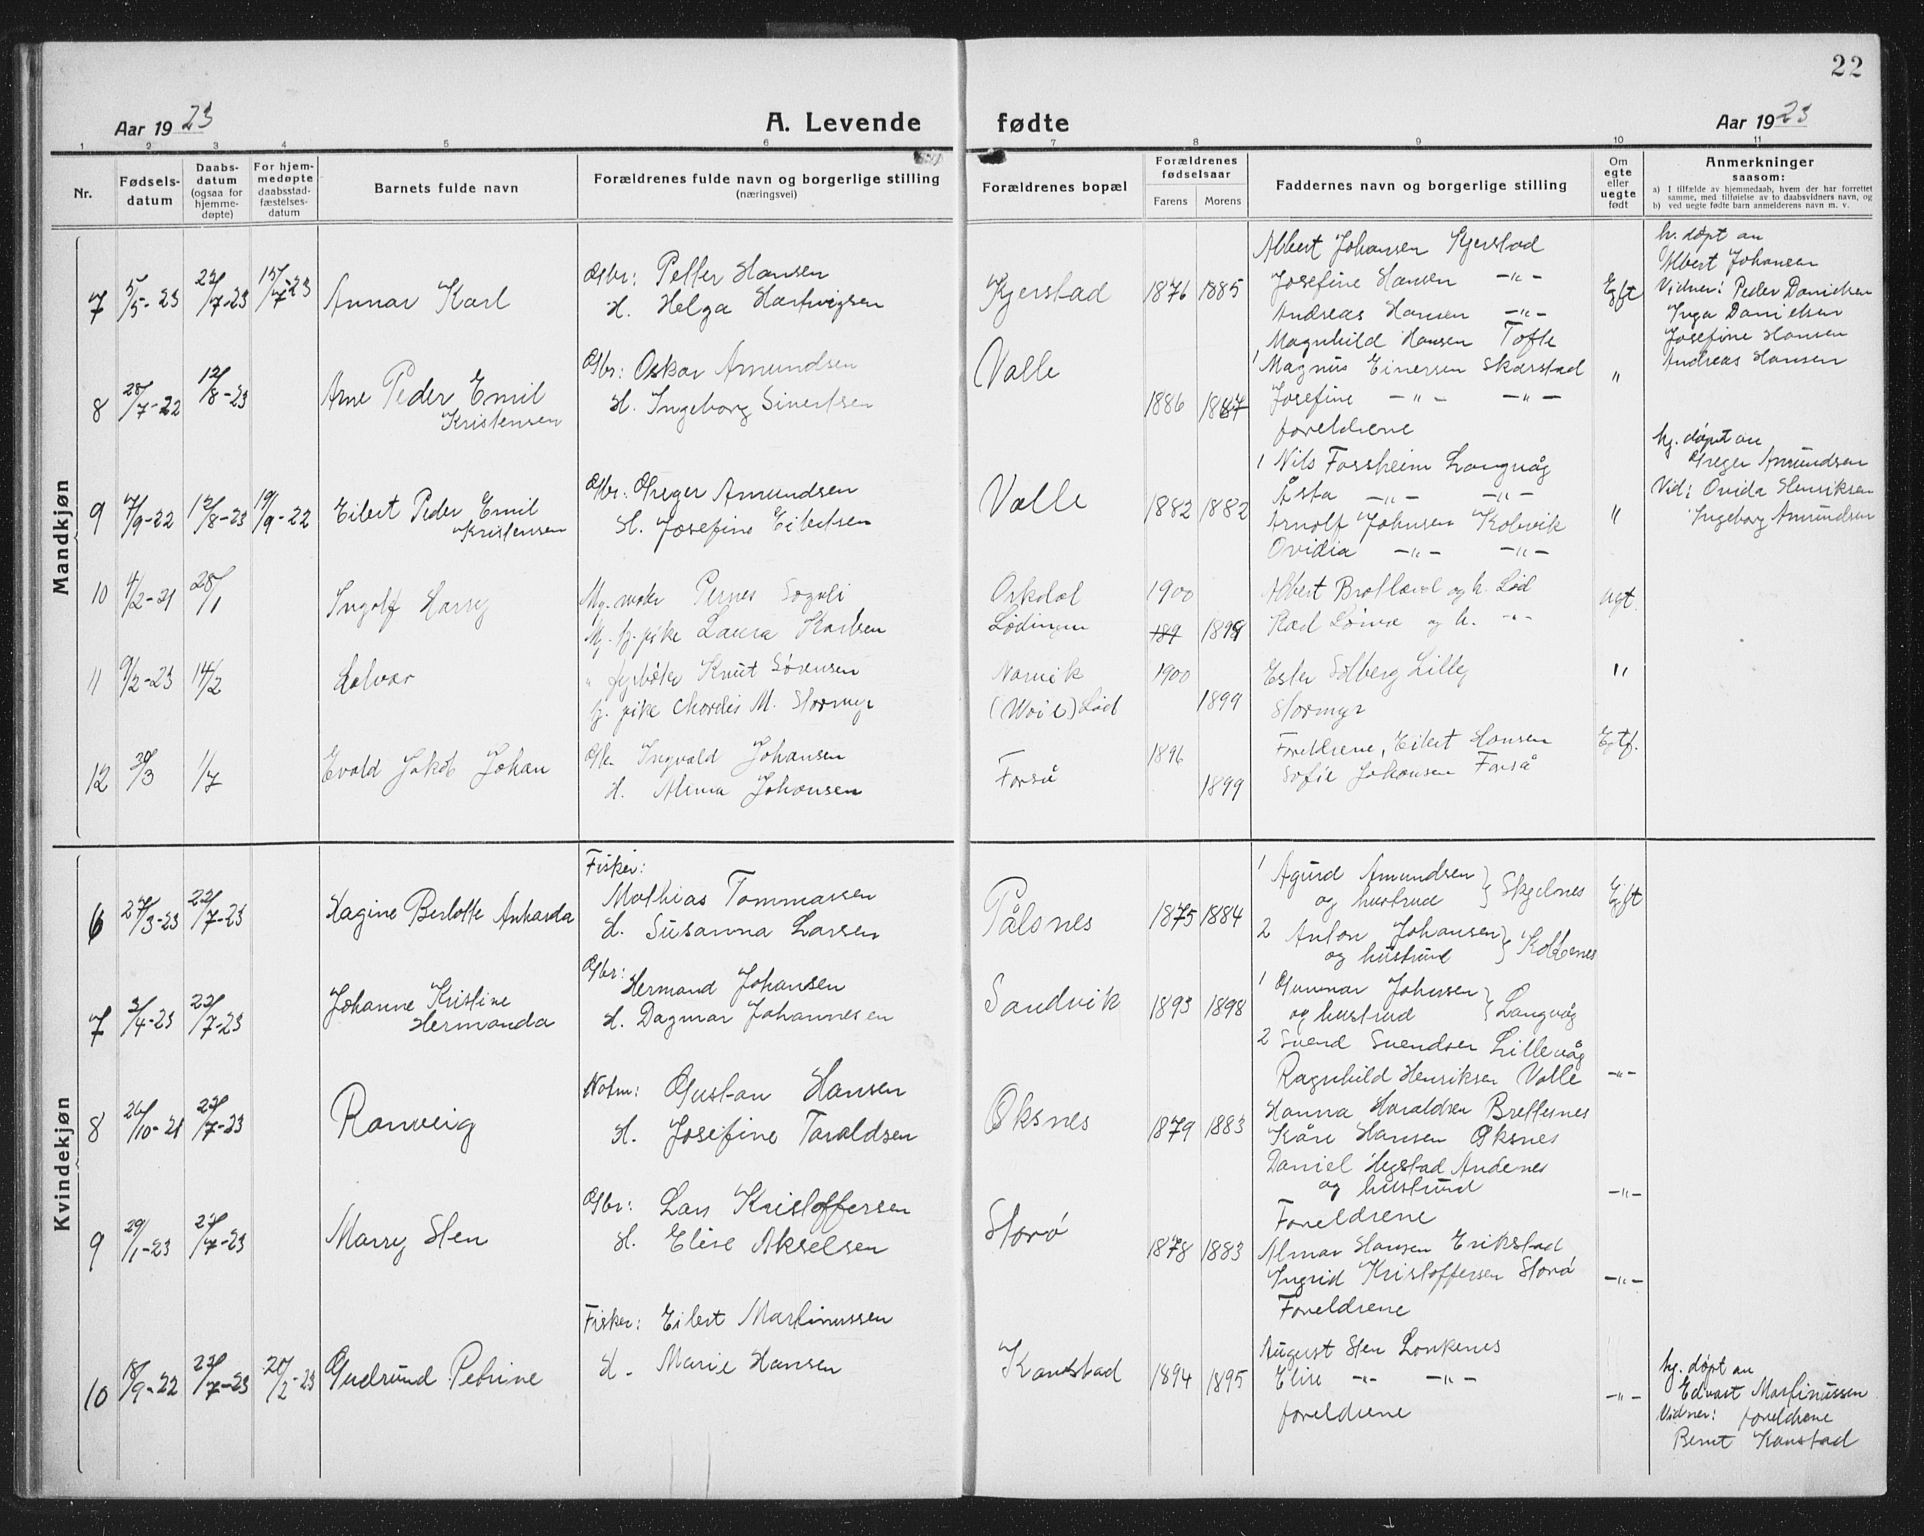 22
Aar 1923
A. Levende fødte
Aar 1923
1 2 3 4 5 6 7 8 9 10 11
Nr.
Fødsels-
datum
Daabs-
datum
(ogsaa for
hjemme-
døpte)
For hjem-
medøpte
daabsstad-
fæstelses-
datum
Barnets fulde navn
Forældrenes fulde navn og borgerlige stilling
(næringsvei)
Forældrenes bopæl
Forældrenes
fødselsaar
Farens Morens
Faddernes navn og borgerlige stilling
Om
egte
eller
uegte
født
Anmerkninger
saasom:
a) I tilfælde av hjemmedaab, hvem der har forrettet
samme, med tilføielse av to daabsvidners navn, og
b) ved uegte fødte barn anmelderens navn m. v.
Mandkjøn
7 5/5-23 22/7-23 15/7-23 Annar Karl
Gbr: Petter Hansen
H. Helga Hartvigsen
Kjerstad 1876 1885
Albert Johansen Kjerstad
Josefine Hansen -"-
Andreas Hansen -"-
Magnhild Hansen Tofte
Egt
hv. døpt av
Albert Johansen
Vidner: Peder Danielsen
Inga Danielsen
Josefine Hansen
Andreas Hansen
8 28/7-22 12/8-23 Arne Peder Emil
Kristensen
Gbr: Oskar Amundsen
H. Ingeborg Sivertsen
Valle 1886 1887
1 Magnus Einersen Skarstad
Josefine -"- -"-
foreldrene
"
9 7/9-22 12/8-23 19/9-22 Eilert Peder Emil
Kristensen
Gbr: Greger Amundsen
H. Josefine Eilertsen
Valle 1882 1882
1 Nils Forsheim Langvåg
Åsta -"- -"-
Arnolf Johnsen Kobvik
Ovidia -"- -"-
"
hj. døpt av
Greger Amundsen
Vid: Ovida Henriksen
Ingeborg Amundsen
10 4/2-21 28/1 Ingolf Harry
Pernes
Laura Karlsen
Orkdal 1900
Lødingen 1899
Albert Bratland og h. Lød
og h. -"-
ugt.
11 9/2-23 14/2
" fyrbøter Knut Sørensen
tj. pike M. Stormyr
Narvik 1900
Lød 1899
Ester Solberg Lilly
Stormyr
"
12 30/3 1/7 Evald Jakob Johan
Ingvald Johansen
H. Alma Johansen
Forså 1896
1899
Foreldrene, Eilert Hansen
Sofie Johansen Forså
Egtf.
Kvindekjøn
6 27/3-23 22/7-23 Hagine Berlotte Anharda
Fisker:
Mathias Tommassen
H. Susanna Larsen
Pålsnes 1875 1884
1 Agurd Amundsen
og hustrud } Skjelnes
2 Anton Johansen
og hustrud } Koldenes
Egt
7 3/4-23 22/7-23 Johanne Kristine
Hermanda
Gbr:
Hermand Johansen
H. Dagmar Johannesen
Sandvik 1893 1898
1 Gunnar Johnsen
og hustrud } Langvåg
2 Svend Svendsen Lillevåg
Ragnhild Henriksen Valle
-"-
8 26/10-21 22/7-23 Ranveig
Notm: Gustav Hansen
H. Josefine Taraldsen
Øksnes 1879 1883
Hanna Haraldsen Brettesnes
Kåre Hansen Øksnes
Daniel Hegstad Andenes
og hustrud
Foreldrene
-"-
9 29/1-23 22/7-23 Marry Sten
Gbr: Lars Kristoffersen
H. Elise Akselsen
Storø 1878 1883
Almar Hansen Erikstad
Ingrid Kristoffersen Storø
Foreldrene
-"-
10 18/9-22 22/7-23 20/2-23 Gudrund Petrine
Fisker: Eilert Martinussen
H. Marie Hansen
Kanstad 1894 1895
August Sten Lonkenes
Elise -"- -"-
foreldrene
-"-
hj. døpt av
Edvart Martinussen
Vidner: foreldrene
Bernt Kanstad